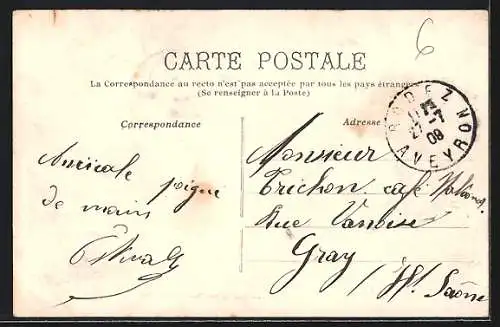 6
CARTE POSTALE
La Correspondance au recto n'est pas acceptée par tous les pays étrangers
(Se renseigner à la Poste)
Correspondance
Adresse
RODEZ
27 - 7
09
AVEYRON
Amicale poigné
de main
Monsieur
Trichon café National.
Rue Vanoise
Gray
/Hte Saône